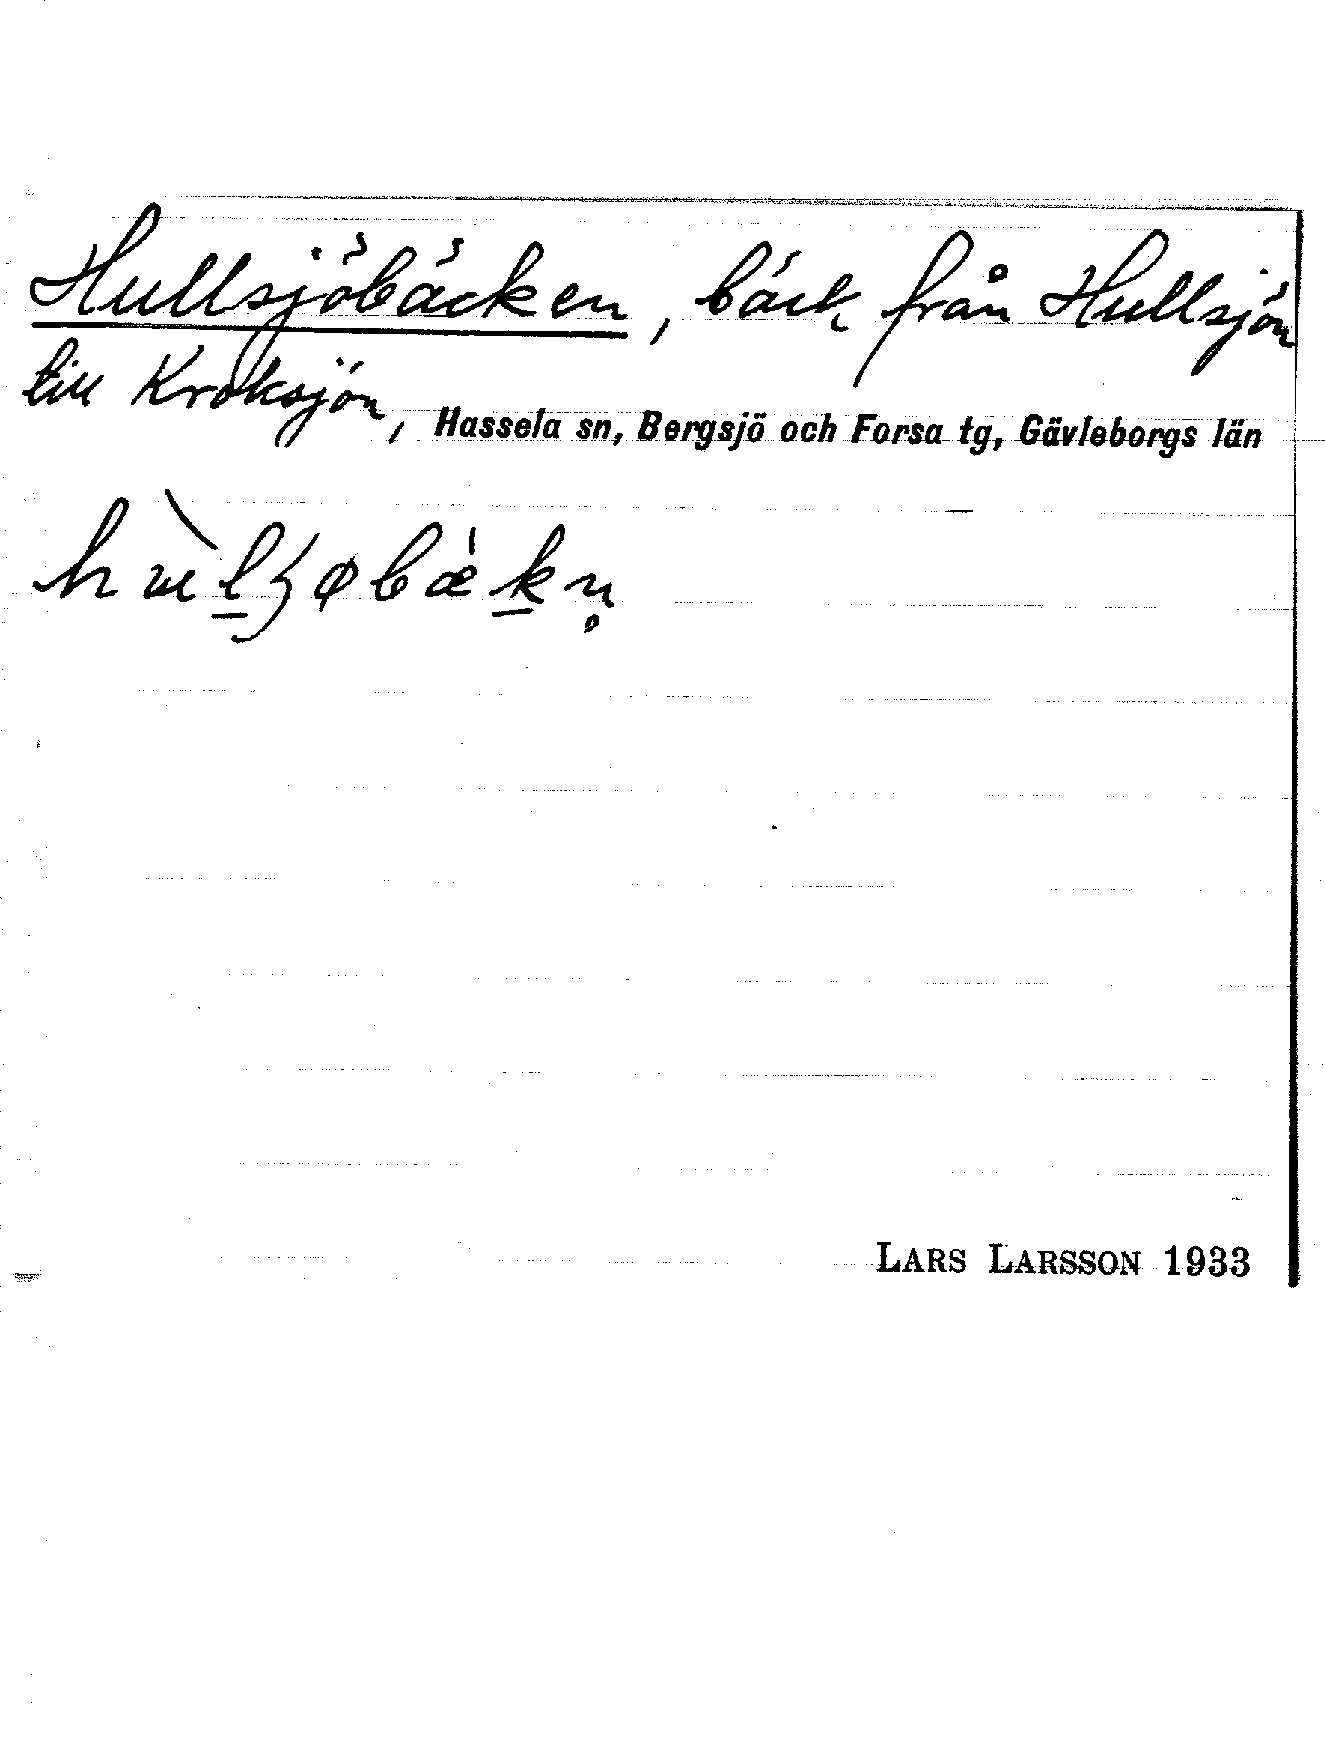 Hullsjöbäcken, bäck från Hullsjön
till Kroksjön, Hassela sn, Bergsjö och Forsa tg, Gävleborgs län
LARS LARSSON 1933